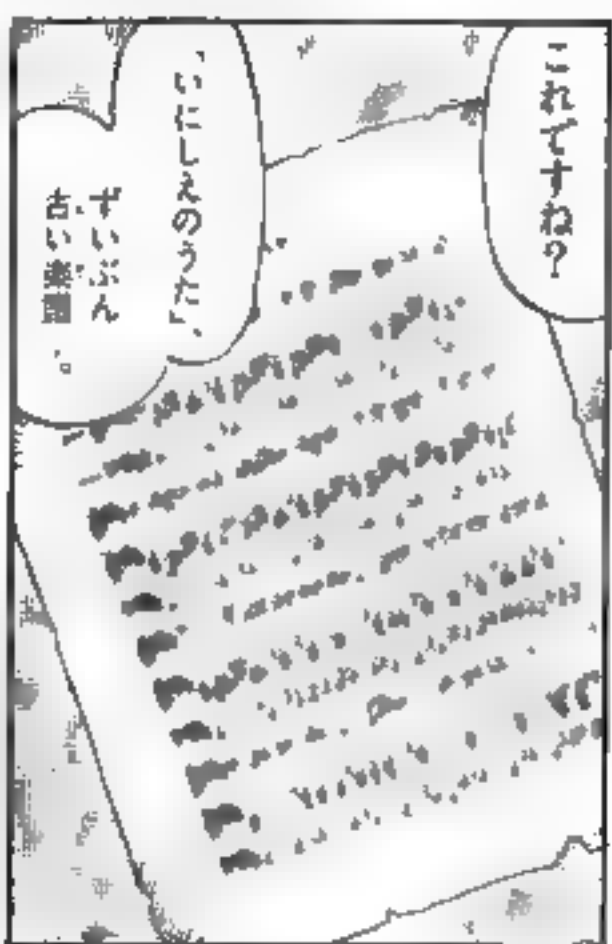 これですね?
「いにしえのうた」、
ずいぶん
古い楽譜。